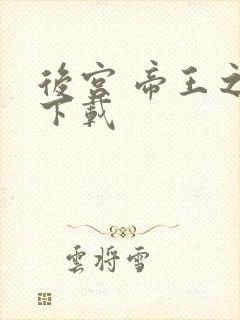 後宮 帝王之
下載
雲將雪